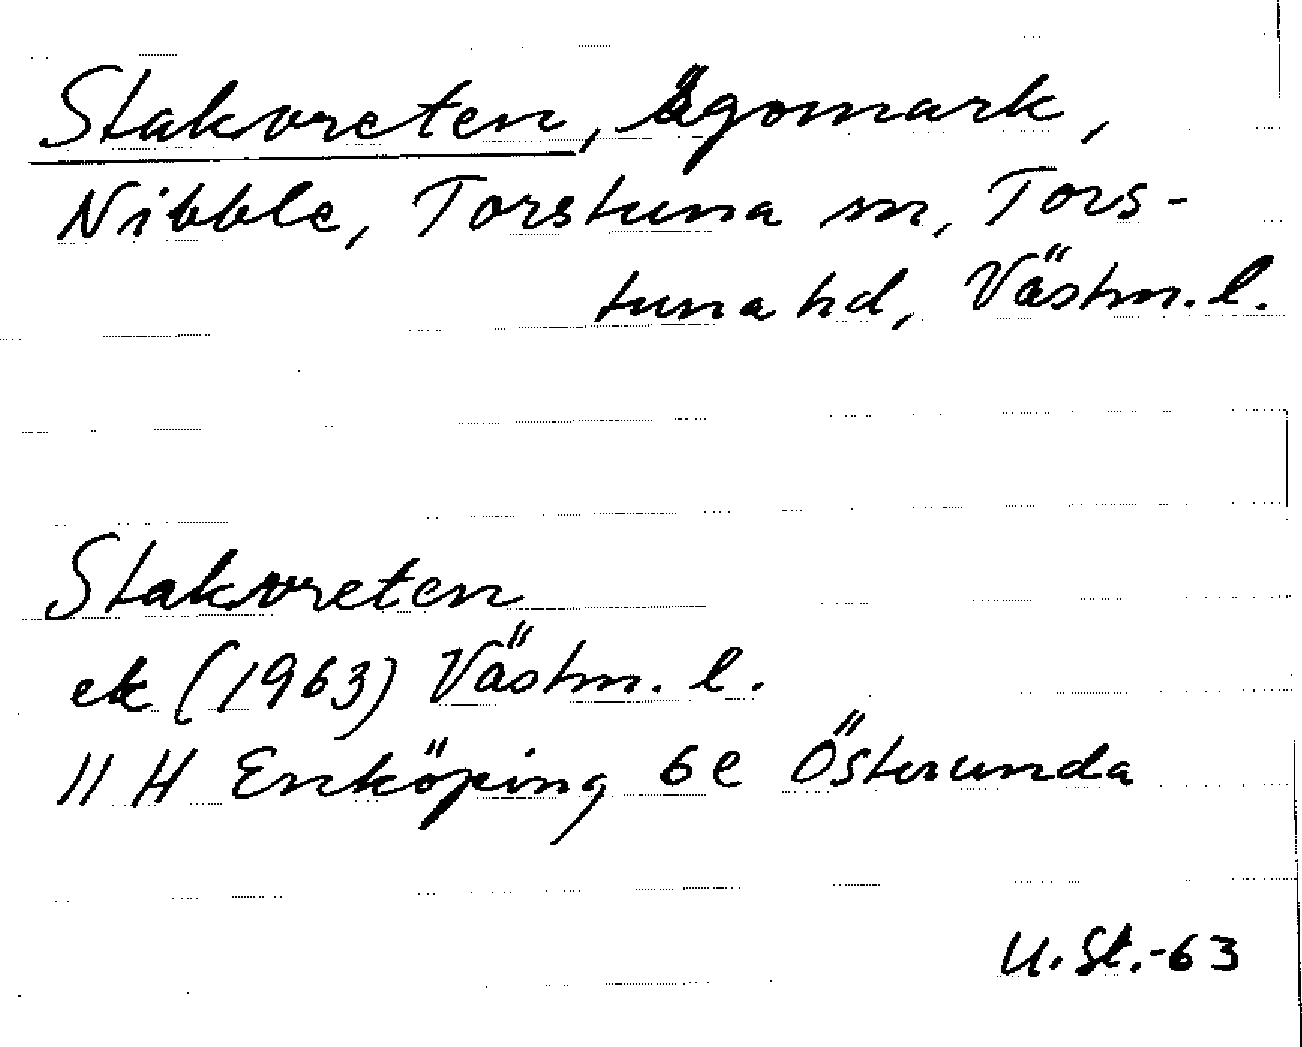 Stakvreten, ägomark,
Nibble, Torstuna sn, Tors-
tuna hd, Västm. l.
Stakvreten
ek (1963) Västm. l.
11 H Enköping 6e Österunda
U. St.-63